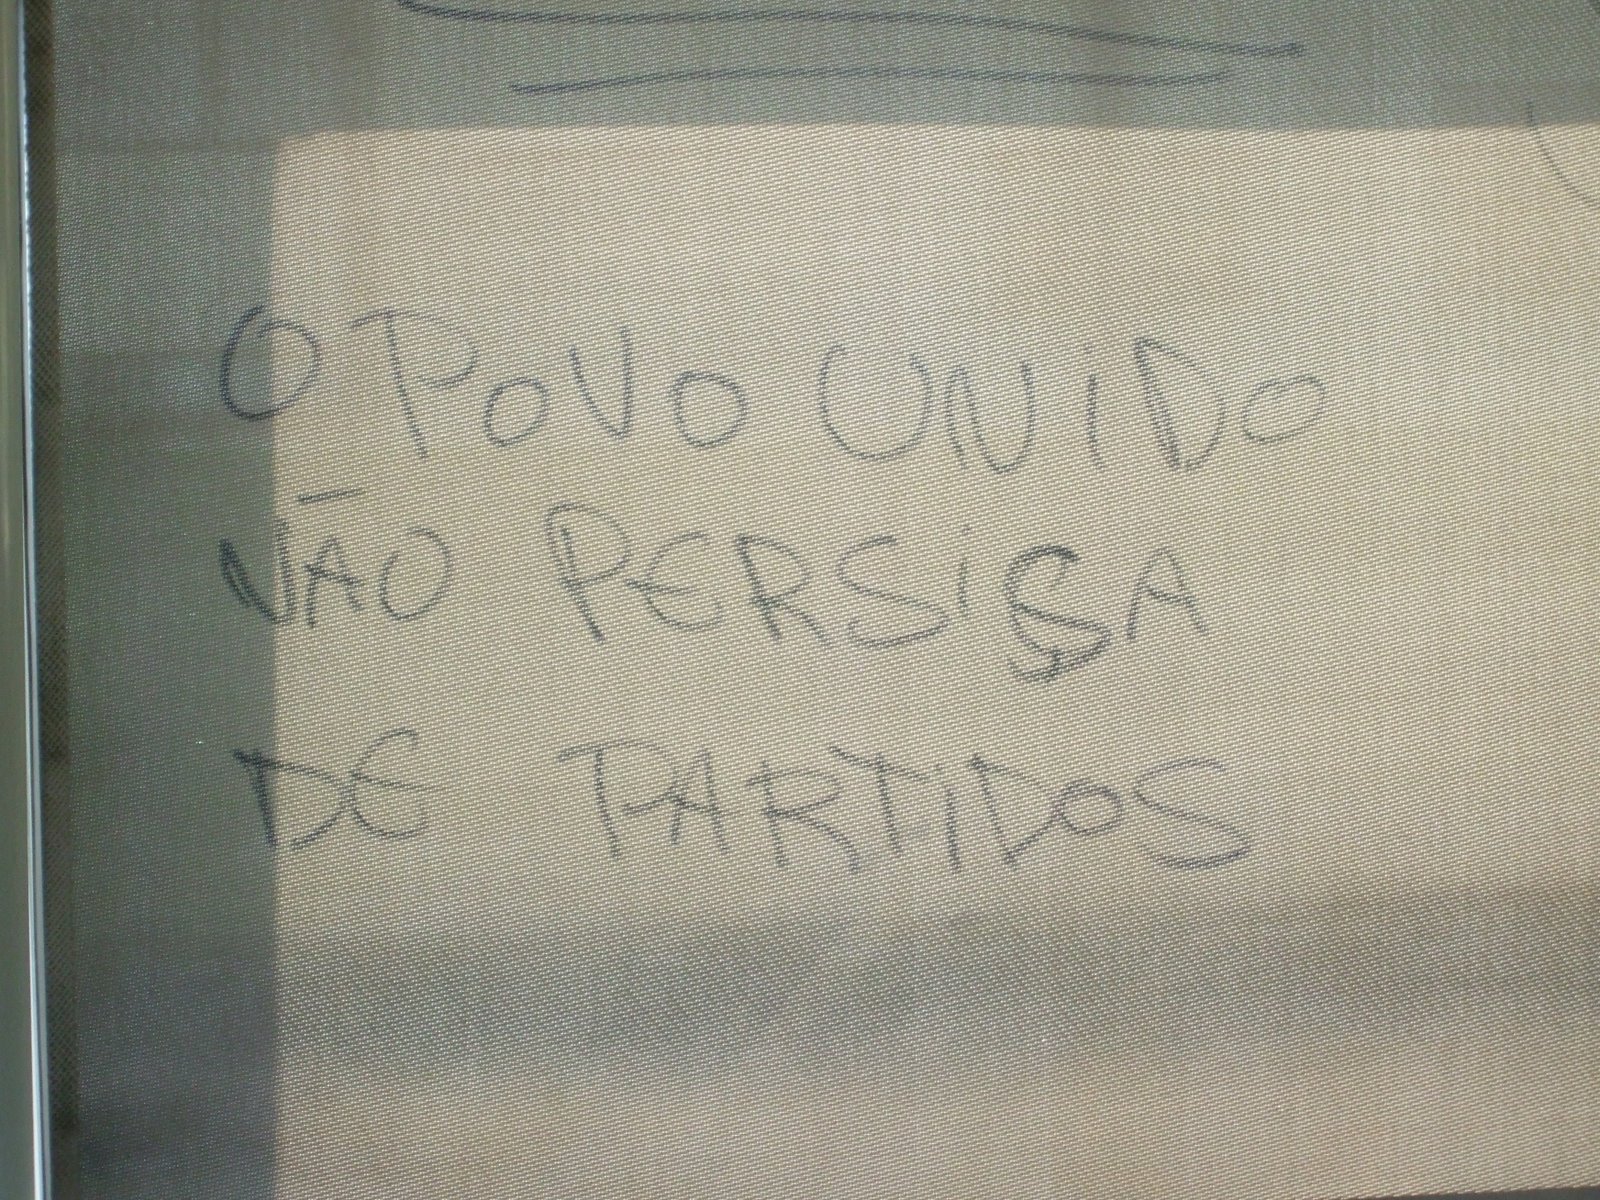 O POVO UNiDO
NÃO PERSiÇA
DE PARTIDOS